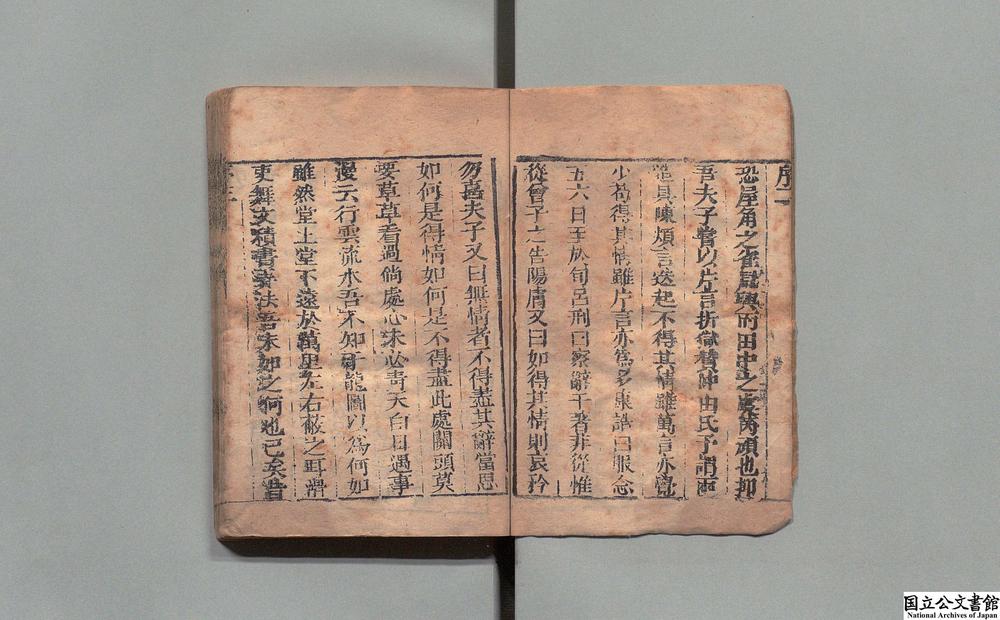 序二
恐屋角之雀鼠與前田中之虞芮頑也抑
吾夫子嘗以片言折獄贊仲由氏予謂兩
造具陳煩言迭起不得其情雖萬言亦覺
少茍得其情雖片言亦為多康誥曰服念
五六日至於旬呂刑曰察辭于差非從惟
從曾子之告陽膚又曰如得其情則哀矜
勿喜夫子又曰無情者不得盡其辭當思
如何是得情如何是不得盡此處關頭莫
要草草看過倘處心未必青天白日遇事
漫云行雲流水吾不知于龍圖以為何如
雖然堂上堂下遠於萬里左右蔽之耳滑
吏舞文積書弄法吾末如之何也已矣昔
国立公文書館
National Archives of Japan